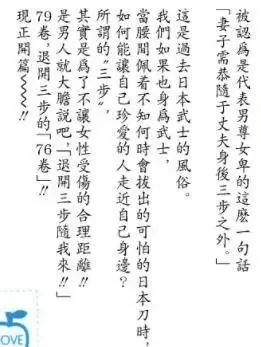 被認爲是代表男尊女卑的這麼一句話
「妻子需恭隨于丈夫身後三步之外。」
這是過去日本武士的風俗。
我們如果也身爲武士,
當腰間佩着不知何時會拔出的可怕的日本刀時,
如何能讓自己珍愛的人走近自己身邊?
所謂的“三步”,
其實是爲了不讓女性受傷的合理距離!!
是男人就大膽說吧,「退開三步隨我來!!」
79卷,退開三步的「76卷」!!
現正開篇~~~!!
OVE